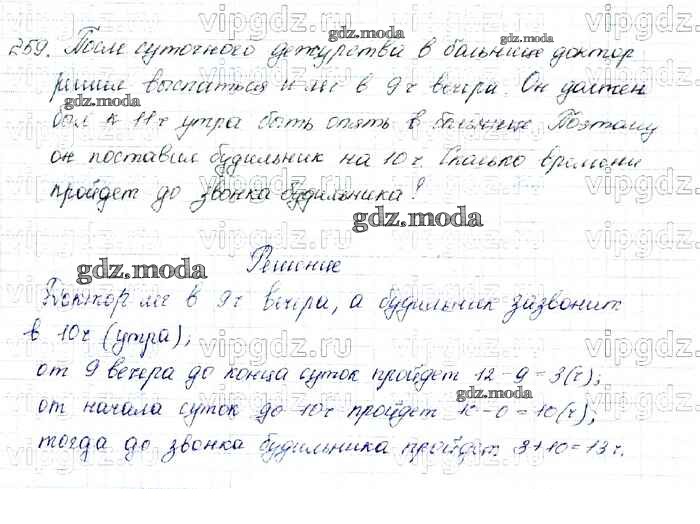 259. После суточного дежурства в больнице доктор
решил выспаться и лёг в 9 ч вечера. Он должен
был к 11 ч утра быть опять в больнице. Поэтому
он поставил будильник на 10 ч. Сколько времени
пройдет до звонка будильника?
Решение
Доктор лёг в 9 ч вечера, а будильник зазвонит
в 10 ч (утра);
от 9 вечера до конца суток пройдет 12 - 9 = 3 (ч);
от начала суток до 10 ч пройдет 10 - 0 = 10 (ч);
тогда до звонка будильника пройдет 3 + 10 = 13 ч.
gdz.moda
gdz.moda
gdz.moda
gdz.moda
gdz.moda
gdz.moda
gdz.moda
gdz.moda
vipgdz.com